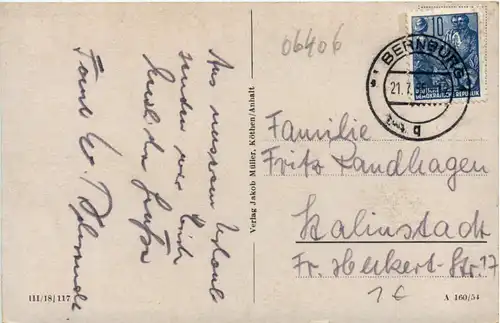 Aus unserem Urlaub
senden wir Euch
herzliche Grüße
Fam.
06406
10
DEUTSCHE
DEMOKRATISCHE REPUBLIK
BERNBURG
21.7.
q
Familie
Fritz Landhagen
Stalinstadt
Fr. Heckert-Str. 17
1€
Verlag Jakob Müller, Köthen/Anhalt
III/18/117
A 160/54